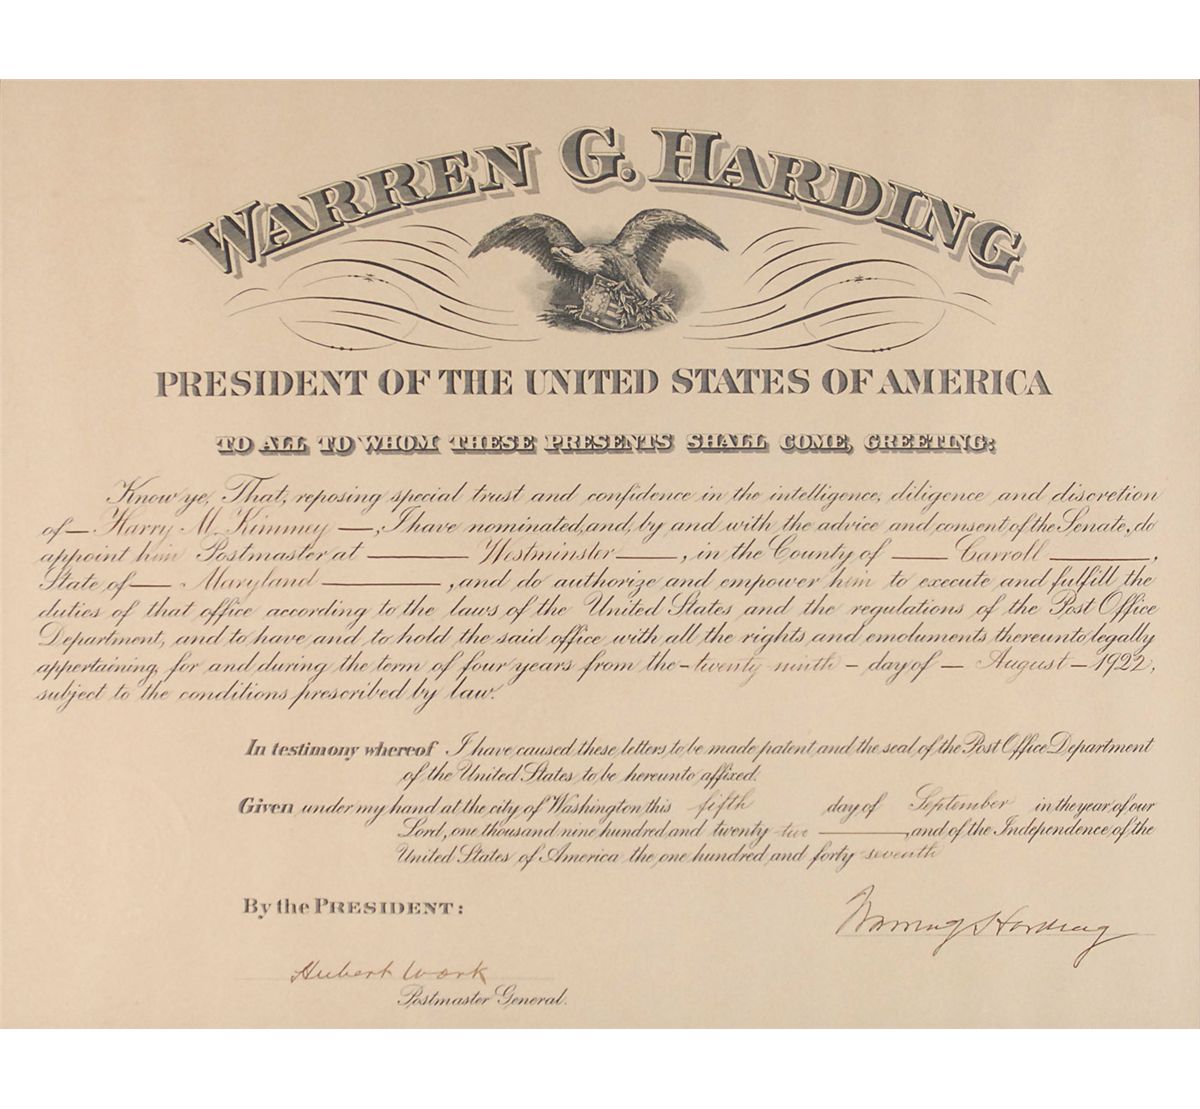 WARREN G. HARDING
PRESIDENT OF THE UNITED STATES OF AMERICA
TO ALL TO WHOM THESE PRESENTS SHALL COME, GREETING:
Know ye, That, reposing special trust and confidence in the intelligence, diligence and discretion
of — Harry M. Kimmey —, I have nominated, and, by and with the advice and consent of the Senate, do
appoint him Postmaster at — Westminster —, in the County of — Carroll —,
State of — Maryland —, and do authorize and empower him to execute and fulfill the
duties of that office according to the laws of the United States and the regulations of the Post Office
Department, and to have and to hold the said office with all the rights and emoluments thereunto legally
appertaining, for and during the term of four years from the - twenty-ninth - day of - August - 1922,
subject to the conditions prescribed by law.
In testimony whereof I have caused these letters to be made patent and the seal of the Post Office Department
of the United States to be hereunto affixed.
Given under my hand at the city of Washington this fifth day of September in the year of our
Lord, one thousand nine hundred and twenty-two —, and of the Independence of the
United States of America the one hundred and forty-seventh
By the PRESIDENT:
Warren G Harding
Hubert Work
Postmaster General.